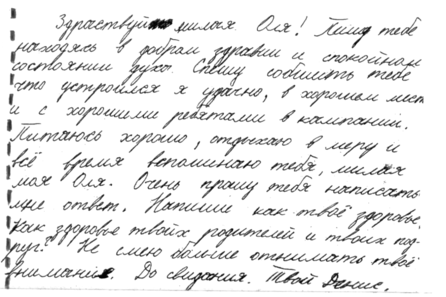 Здравствуй милая Оля! Пишу тебе
находясь в добром здравии и спокойном
состоянии духа. Спешу сообщить тебе
что устроился я удачно, в хорошем месте
и с хорошими ребятами в кампании.
Питаюсь хорошо, отдыхаю в меру и
всё время вспоминаю тебя, милая
моя Оля. Очень прошу тебя написать
мне ответ. Напиши как твоё здоровье.
Как здоровье твоих родителей и твоих под-
руг? Не смею больше отнимать твоё
внимание. До свидания. Твой Денис.